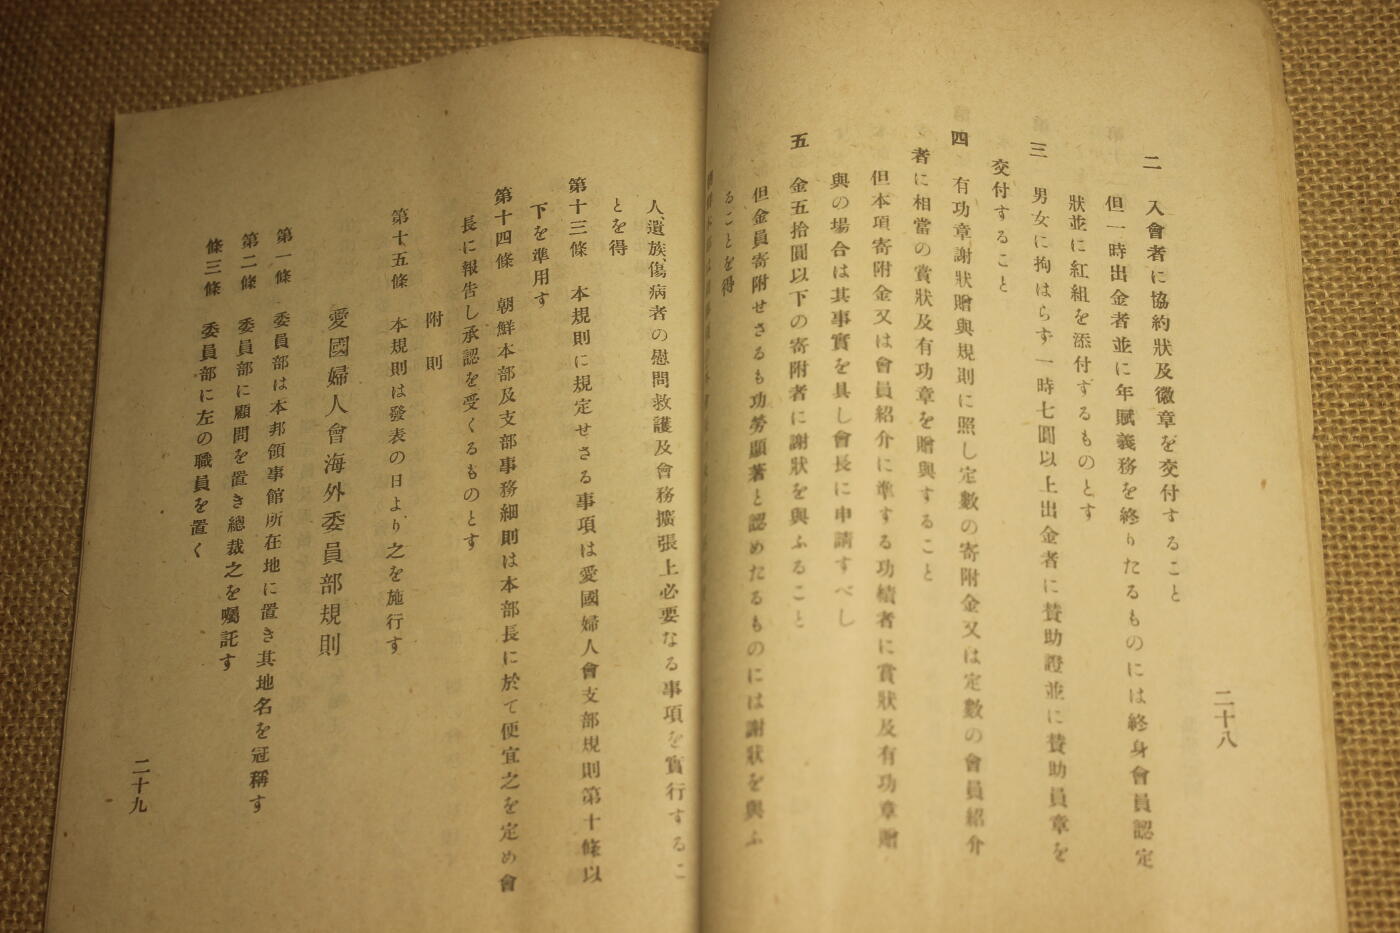 二十八
二　入會者に協約狀及徽章を交付すること
但一時出金者並に年賦義務を終りたるものには終身會員認定
狀並に紅組を添付するものとす
三　男女に拘はらす一時七圓以上出金者に賛助證並に賛助員章を
交付すること
四　有功章謝狀贈與規則に照し定數の寄附金又は定數の會員紹介
者に相當の賞狀及有功章を贈與すること
但本項寄附金又は會員紹介に準する功績者に賞狀及有功章贈
與の場合は其事實を具し會長に申請すべし
五　金五拾圓以下の寄附者に謝狀を與ふること
但金員寄附せさるも功勞顯著と認めたるものには謝狀を與ふ
ることを得
人、遺族、傷病者の慰問救護及會務擴張上必要なる事項を實行するこ
とを得
第十三條　本規則に規定せさる事項は愛國婦人會支部規則第十條以
下を準用す
第十四條　朝鮮本部及支部事務細則は本部長に於て便宜之を定め會
長に報告し承認を受くるものとす
附則
第十五條　本規則は發表の日より之を施行す
愛國婦人會海外委員部規則
第一條　委員部は本邦領事館所在地に置き其地名を冠稱す
第二條　委員部に顧問を置き總裁之を囑託す
條三條　委員部に左の職員を置く
二十九